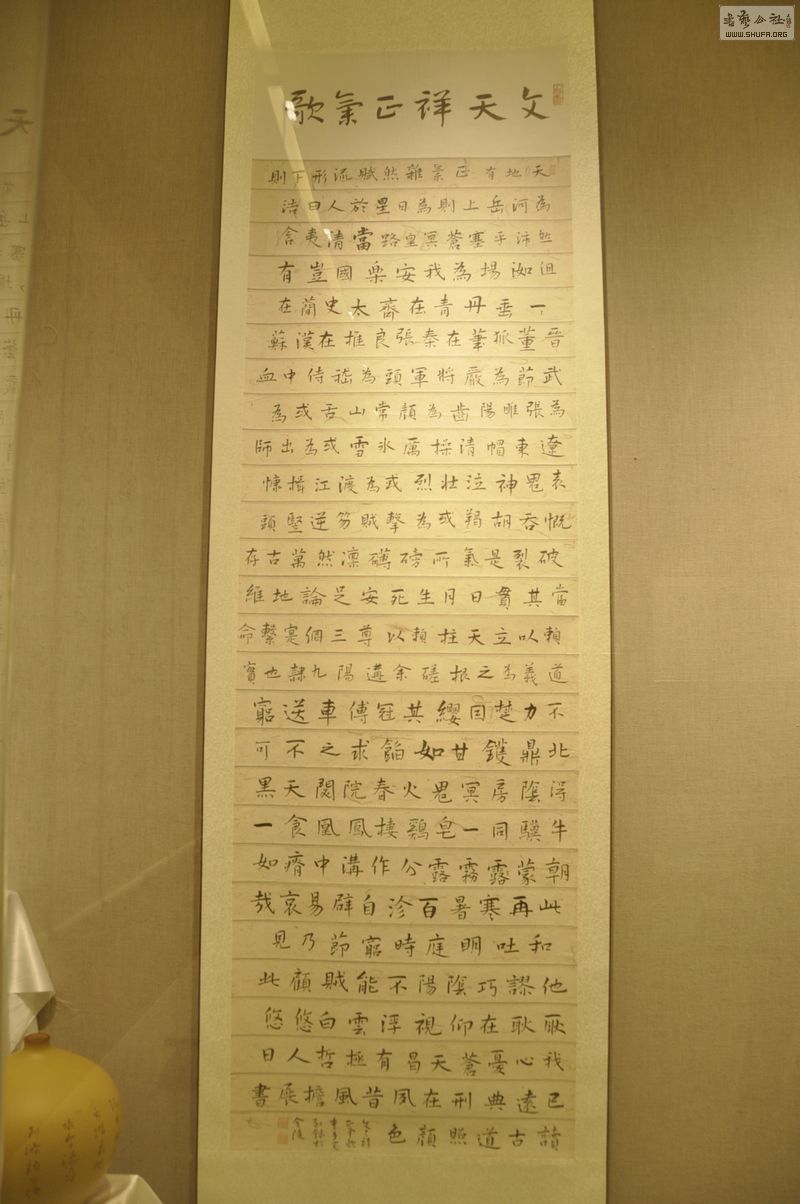 書藝公社
WWW.SHUFA.ORG
文天祥正氣歌
天地有正氣雜然賦流形下則
為河岳上則為日星於人曰浩
然沛乎塞蒼冥皇路當清夷含
沮洳場為我安樂國豈有
一垂丹青在齊太史簡在
晉董狐筆在秦張良椎在漢蘇
武節為嚴將軍頭為嵇侍中血
為張睢陽齒為顏常山舌或為
遼東帽清操厲冰雪或為出師
表鬼神泣壯烈或為渡江楫慷
慨吞胡羯或為擊賊笏逆豎頭
破裂是氣所磅礴凜然萬古存
當其貫日月生死安足論地維
賴以立天柱賴以尊三個寔繫命
道義為之根磋余遘陽九隸也實
不力楚囚纓其冠傳車送窮
北鼎鑊甘如飴求之不可
得陰房冥鬼火春院閟天黑
牛驥同一皂鷄棲鳳凰食一
朝蒙露霧露分作溝中瘠如
此再寒暑百沴自辟易哀哉
和吐明庭時窮節乃見
他謬巧陰陽不能賊顧此
耿耿在仰視浮雲白悠悠
我心憂蒼天曷有極哲人日
已遠典刑在夙昔風擔展書
讀古道照顏色